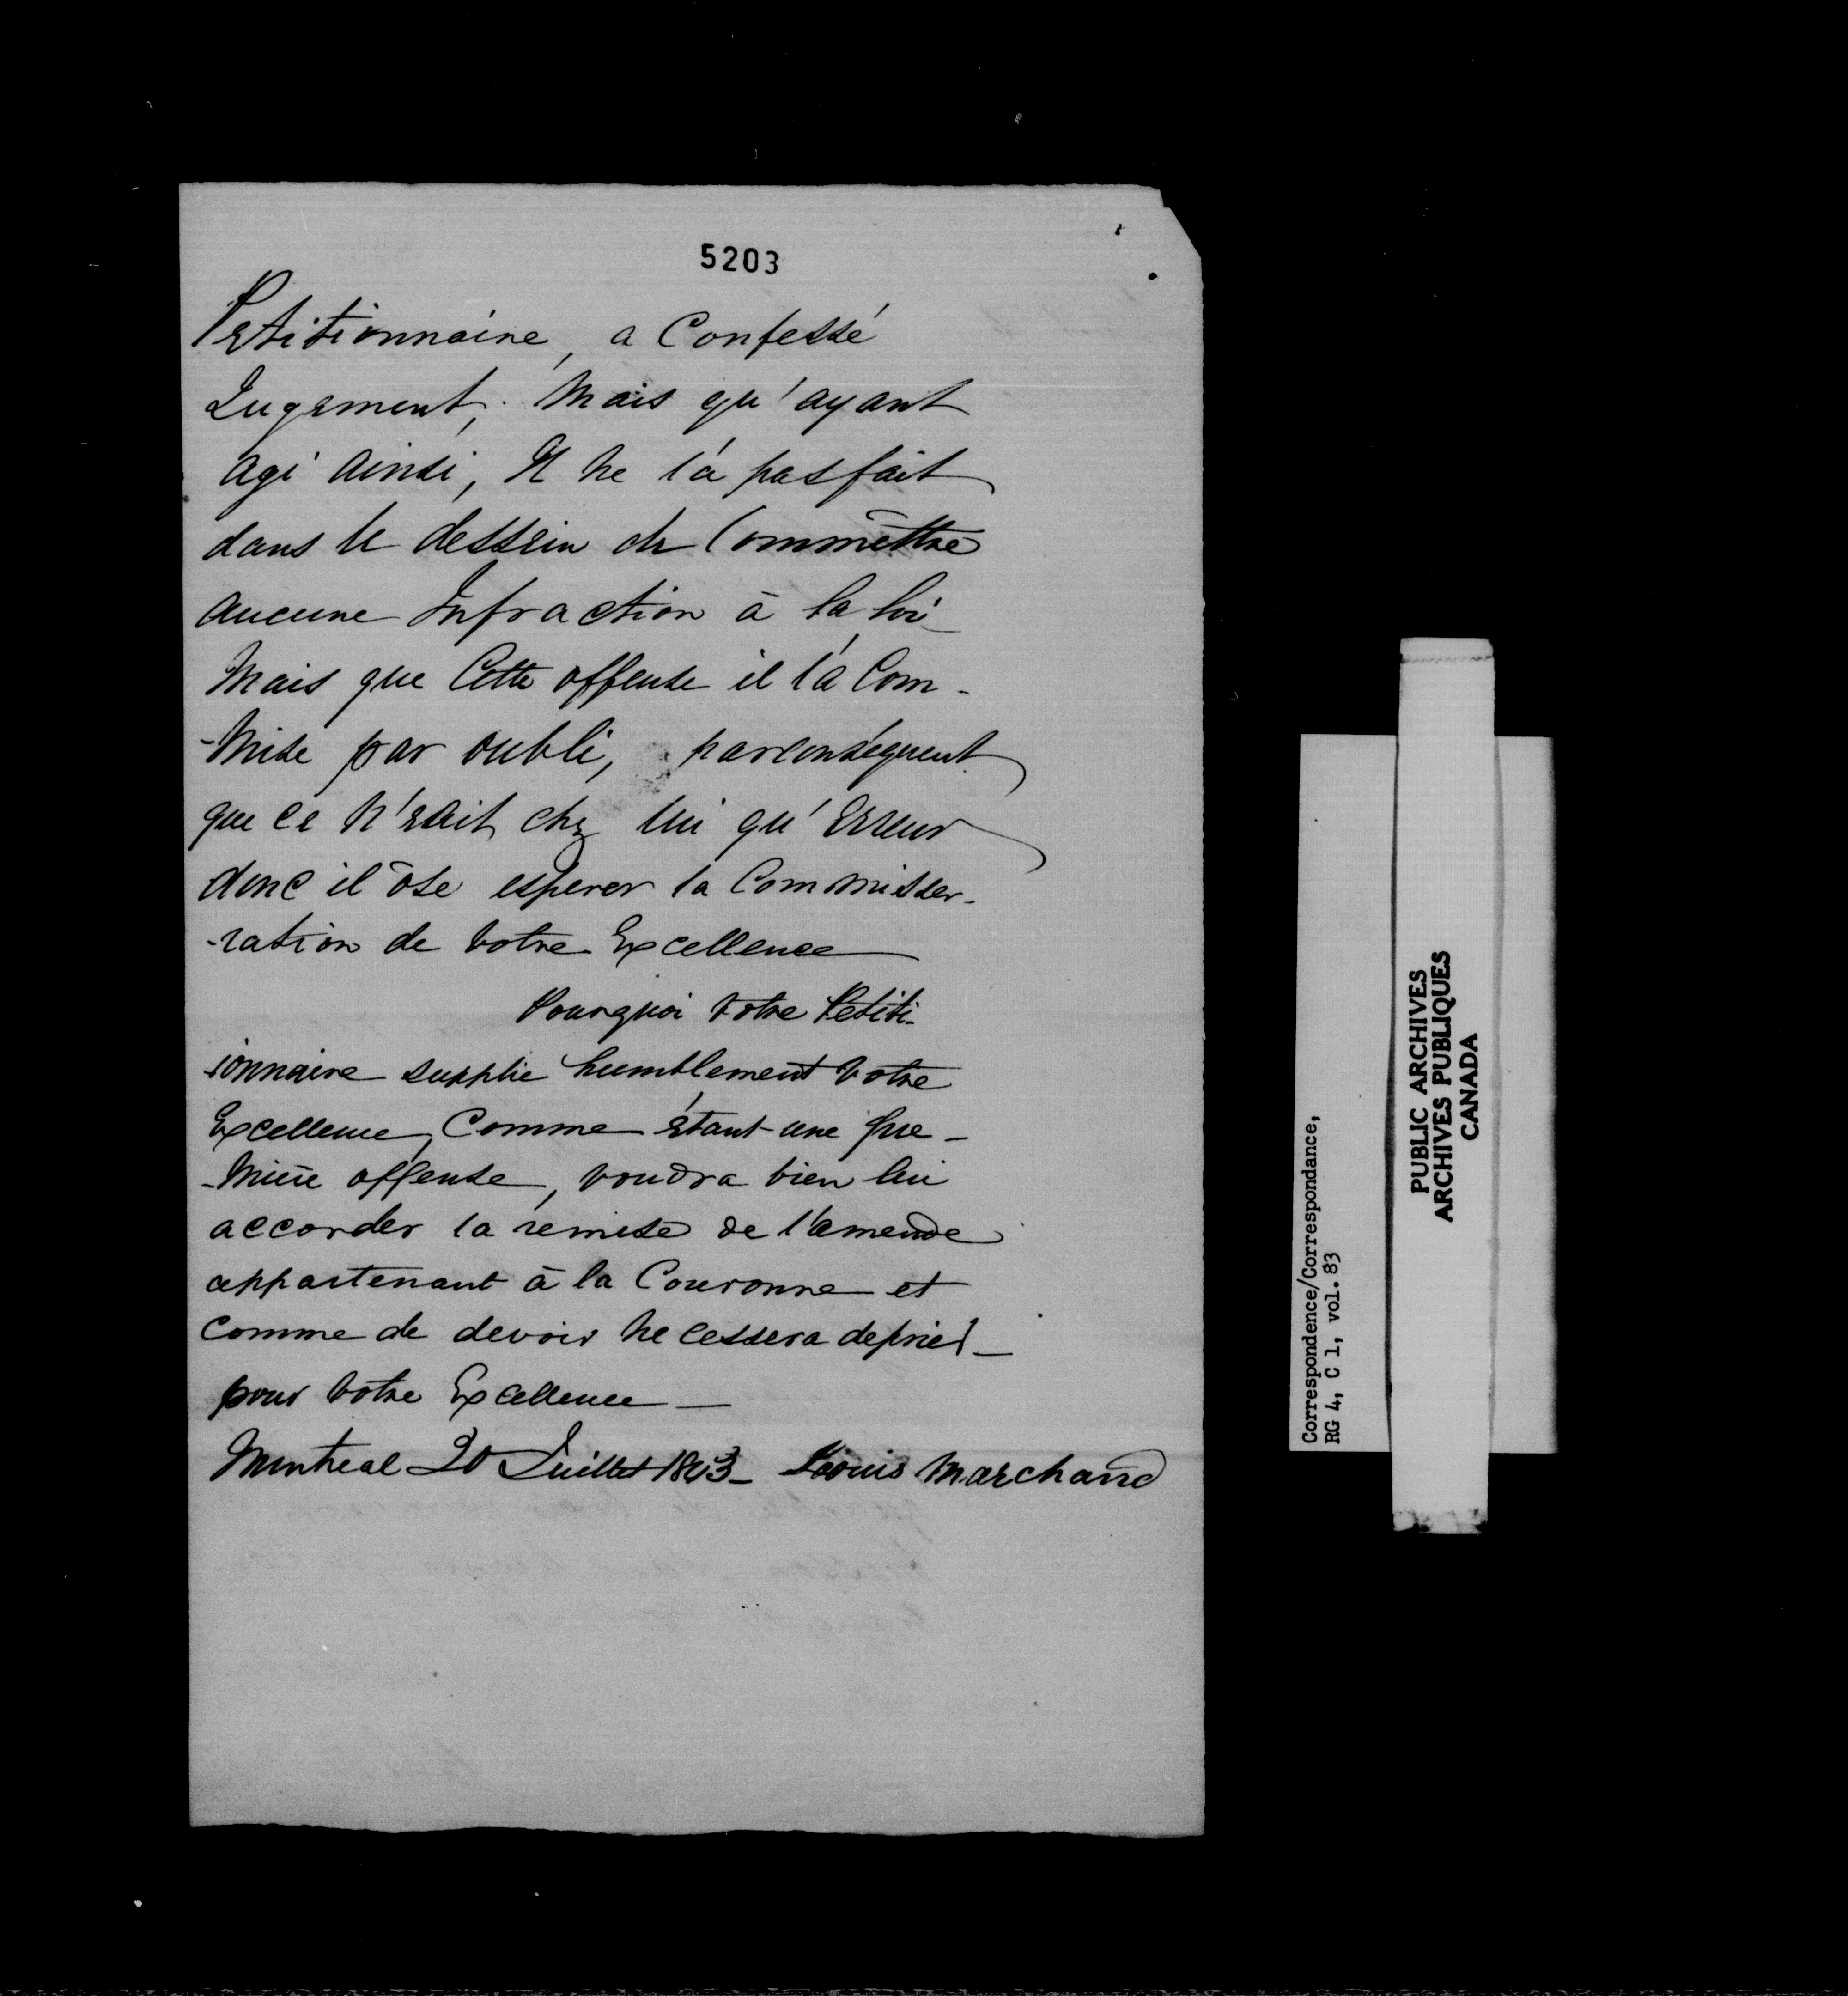 5203
Petitionnaire, a Confessé
Jugement, Mais qu'ayant
agi ainsi, Il ne l'a pas fait
dans le dessein de Commêttre
aucune Infraction à la loi
Mais que Cette offense il l'a Com-
-mise par oubli, parconséquent
que ce n'était chez lui qu'Erreur
donc il ôse esperer la Commisser-
-ration de Votre Excellence
Pourquoi Votre Petiti-
ionnaire supplie humblement Votre
Excellence, Comme étant une pre-
-mière offense, voudra bien lui
accorder la remise de l'amende
appartenant à la Couronne et
comme de devoir ne cessera de prier
pour Votre Excellence
Montreal 20 Juillet 1843 Louis Marchand
Correspondence/Correspondance,
RG 4, C 1, vol. 83
PUBLIC ARCHIVES
ARCHIVES PUBLIQUES
CANADA